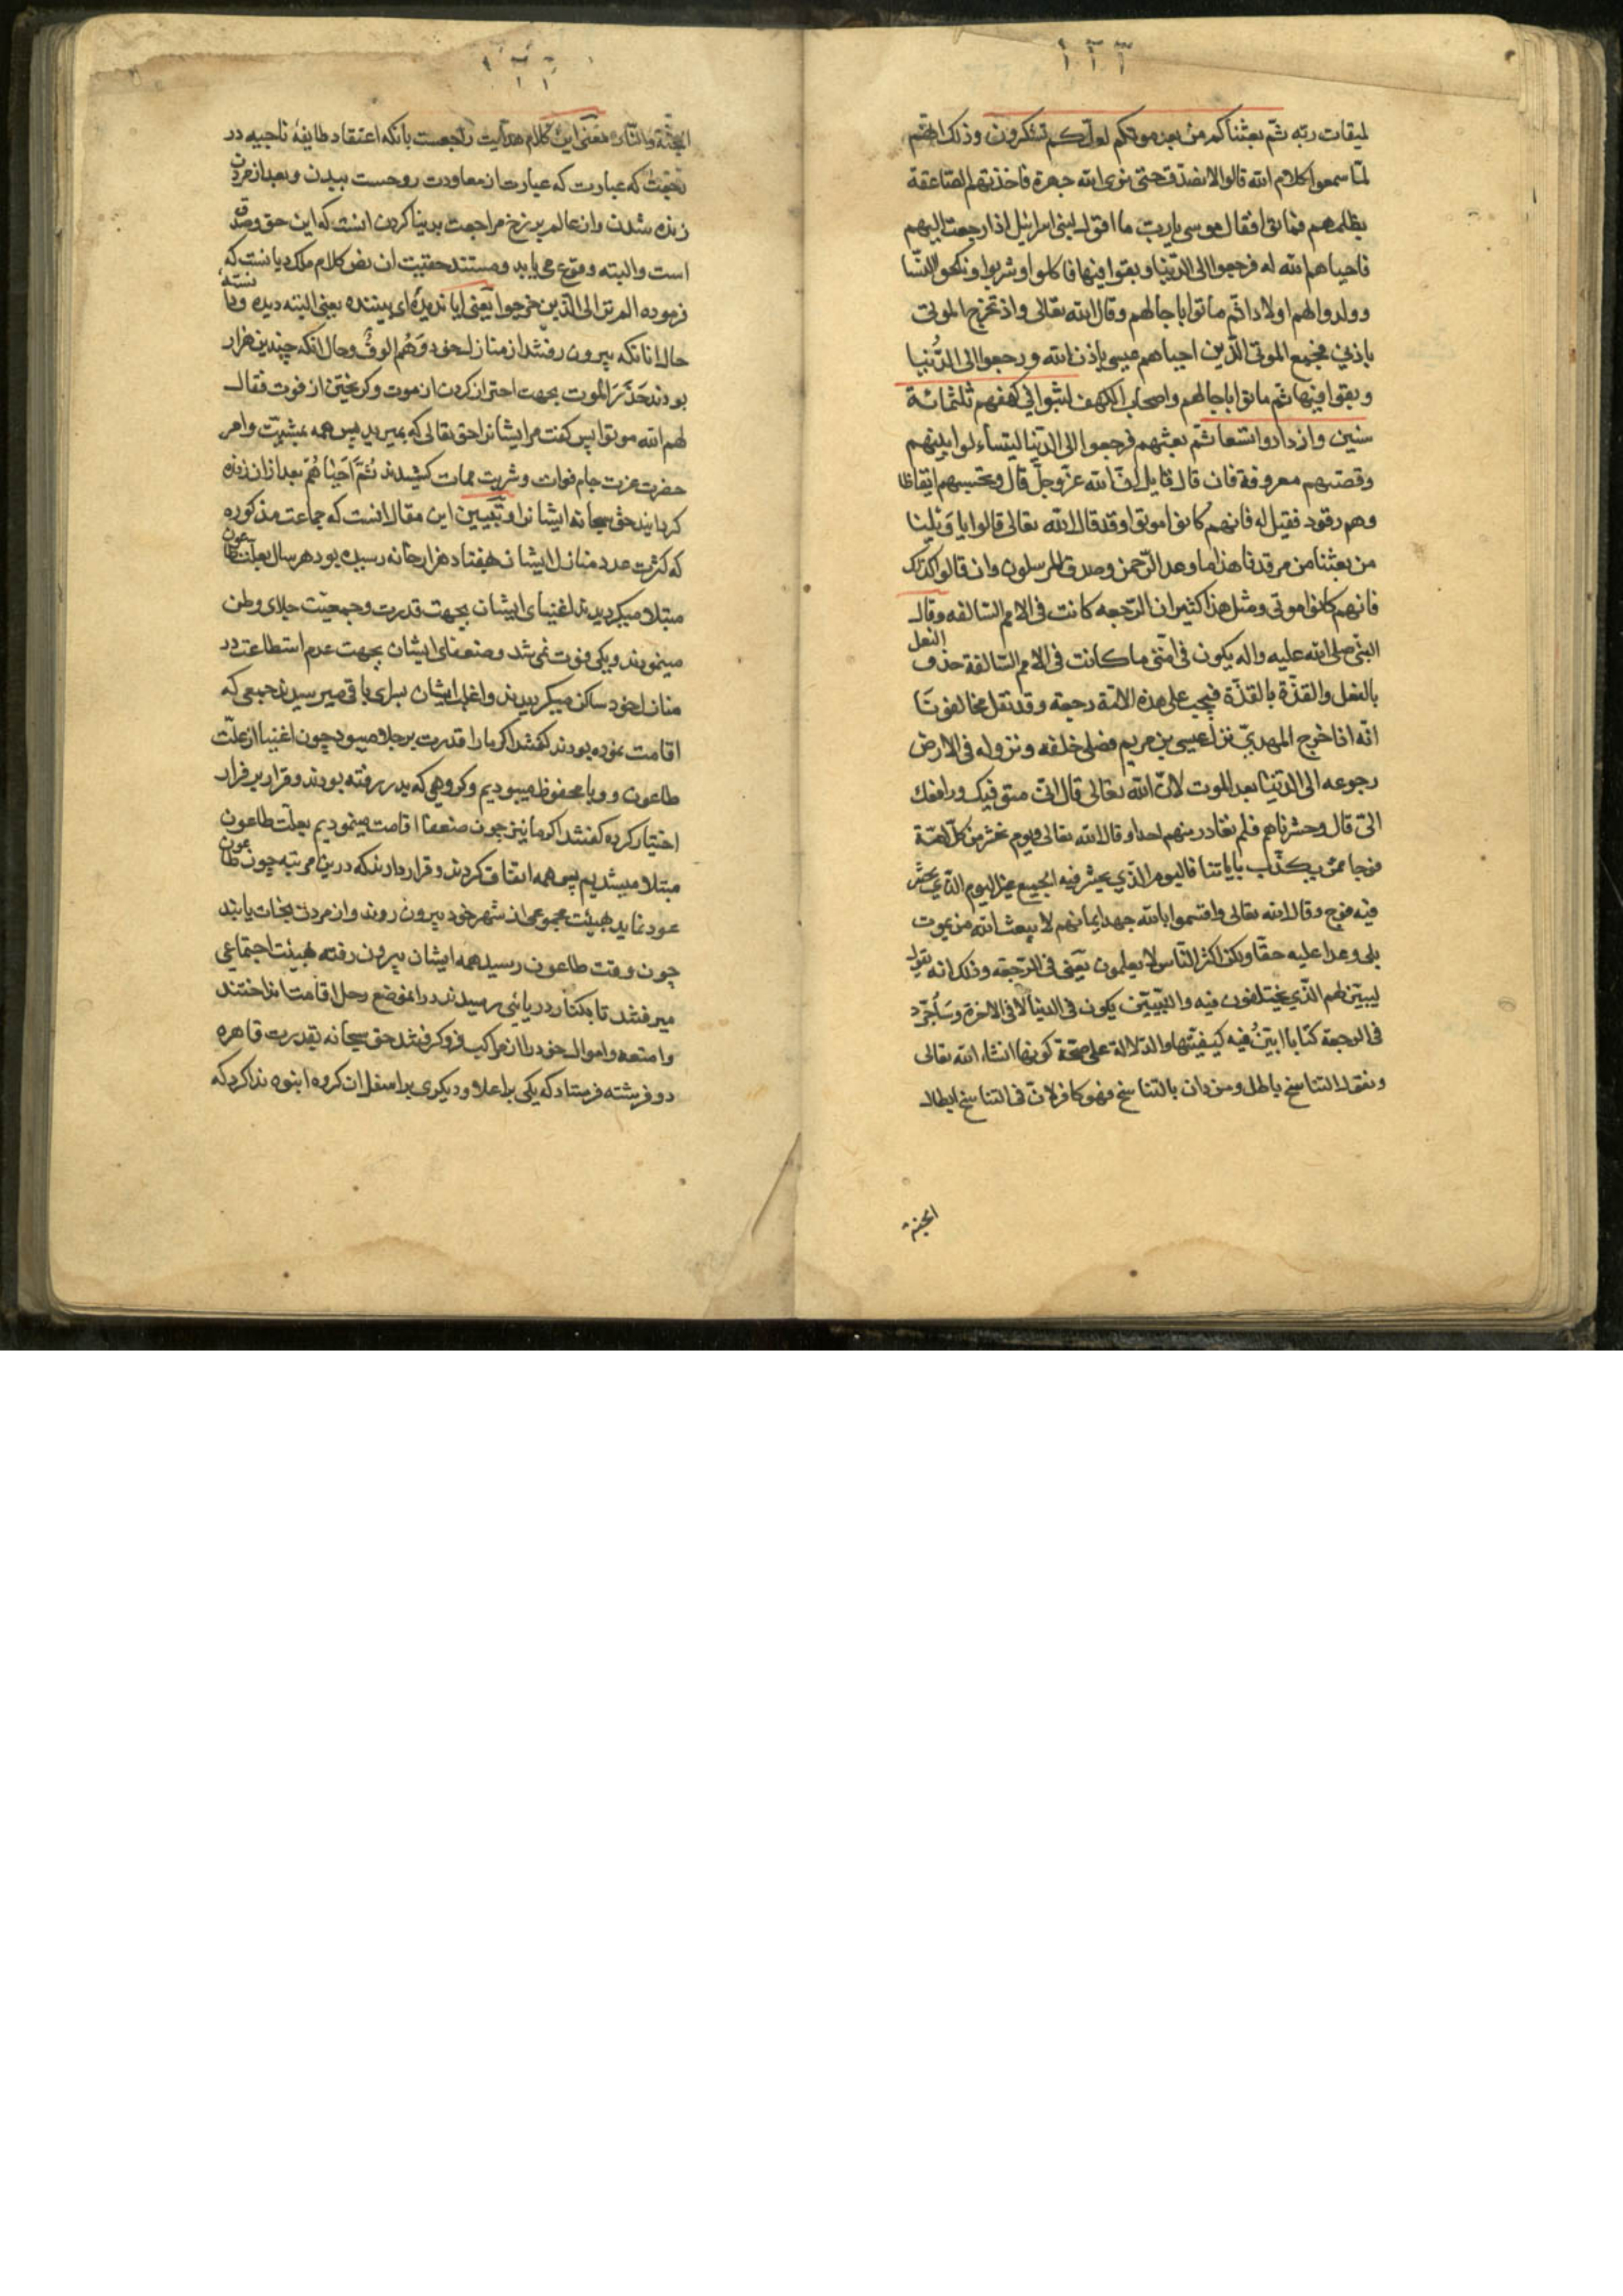 لميقات ربه ثمّ بعثناكم من بعد موتكم لعلّكم تشكرون وذلك انّهم
لمّا سمعوا كلام الله قالوا لا نصدّق حتى نرى الله جهرة فاخذتهم الصّاعقة
بظلمهم فماتوا فقال موسى يا ربّ ما اقول لبنى اسرائيل اذا رجعت اليهم
فاحياهم الله له فرجعوا الى الدّنيا وبقوا فيها فاكلوا وشربوا ونكحوا النّسا
وولدوا لهم اولادا ثمّ ماتوا باجالهم وقال الله تعالى واذ تخرج الموتى
باذني فجميع الموتى الّذين احياهم عيسى باذن الله ورجعوا الى الدّنيا
وبقوا فيها ثمّ ماتوا باجالهم واصحاب الكهف لبثوا في كهفهم ثلثمائة
سنين وازدادوا تسعا ثمّ بعثهم فرجعوا الى الدّنيا ليتساءلوا بينهم
وقصّتهم معروفة فان قال قايل انّ الله عزّ وجلّ قال وتحسبهم ايقاظا
وهم رقود فقيل له فانهم كانوا موتى وقد قال الله تعالى قالوا يا ويلنا
من بعثنا من مرقدنا هذا ما وعد الرّحمن وصدق المرسلون وان قالوا كذلك
فانهم كانوا موتى ومثل هذا كثير ان الرّجعه كانت في الامم السّالفه وقال
النبي صلى الله عليه واله يكون في امّتى ما كانت في الامم السّالفة حذف النعل
بالنعل والقذّة بالقذّة فيجب على هذه الامّة رجعة وقد نقل مخالفونا
انّه اذا خرج المهديّ نزل عيسى بن مريم فصلى خلفه ونزوله في الارض
رجوعه الى الدّنيا بعد الموت لانّ الله تعالى قال انّى متوفيك ورافعك
الىّ قال وحشرناهم فلم نغادر منهم احدا وقال الله تعالى ويوم نحشر من كلّ امّة
فوجا ممّن يكذّب باياتنا فاليوم الّذي يحشر فيه الجميع غير اليوم الّذي يحشر
فيه فوج وقال الله تعالى واقسموا بالله جهد ايمانهم لا يبعث الله من يموت
بلى وعدا عليه حقّا ولكن اكثر النّاس لا يعلمون يعنى في الرّجعة وذلك انه يقول
ليبيّن لهم الّذي يختلفون فيه والتبيّين يكون في الدنيا لا في الاخرة وسأجرّد
في الرجعة كتابا ابيّن فيه كيفيّتها والدّلالة على صحّة كونها انشاء الله تعالى
ونقول التناسخ باطل ومن دان بالتناسخ فهو كافر لانّ في التناسخ ابطال
الجنة
الجنّة والنّار معنى اين كلام هدايت راجعست بانكه اعتقاد طايفهٔ ناجيه در
رجعت كه عبارت از معاودت روحست ببدن وبعد از مردن
زنده شدن واز عالم برزخ مراجعت بدنيا كردن انست كه اين حق وصدق
است والبته وقوع مى يابد ومستند حقّيت ان نص كلام ملك ديانست كه
فرموده الم تر الى الّذين خرجوا يعنى ايا نديدهٔ اى بيننده يعنى البته ديده و دانسته
حال انانكه بيرون رفتند از منازل خود وَهُم اُلوفٌ وحال انكه چندين هزار
بودند حَذَرَ الموت بجهت احتراز كردن از موت وكريختن از فوت فقال
لهم الله موتوا پس كفت مر ايشانرا حق تعالى كه بميريد پس همه بمشيّت وامر
حضرت عزت جام فوات وشربت ممات كشيدند ثُمَّ اَحياهُم بعد از ان زنده
كردانيد حق سبحانه ايشانرا وتبيين اين مقال انست كه جماعت مذكوره
كه كثرت عدد منازل ايشان بهفتاد هزار خانه رسيده بود هر سال بعلّت طاعون
مبتلا ميكرديدند اغنياى ايشان بجهت قدرت وجمعيّت جلاى وطن
مينمودند ويكى فوت نمى شد وضعفاى ايشان بجهت عدم استطاعت در
منازل خود ساكن ميكرديدند واغلب ايشان بسراى باقى ميرسيدند جمعى كه
اقامت نموده بودند كفتند اكر ما را قدرت بر جلا ميبود چون اغنيا از علّت
طاعون و وبا محفوظ ميبوديم وكروهى كه بدر رفته بودند وقرار بر فرار
اختيار كرده كفتند اكر ما نيز چون ضعفا اقامت مينموديم بعلّت طاعون
مبتلا ميشديم پس همه اتفاق كردند وقرار دادند كه درين مرتبه چون طاعون
عود نمايد بهيئت مجموعى از شهر خود بيرون روند واز مردن نجات يابند
چون وقت طاعون رسيد همه ايشان بيرون رفته بهيئت اجتماعى
ميرفتند تا بكنار دريائى رسيدند در انموضع رحل اقامت انداختند
وامتعه واموال خود را از مراكب فرو كرفتند حق سبحانه بقدرت قاهره
دو فرشته فرستاد كه يكى بر اعلا و ديكرى بر اسفل ان كروه انبوه ندا كرد كه